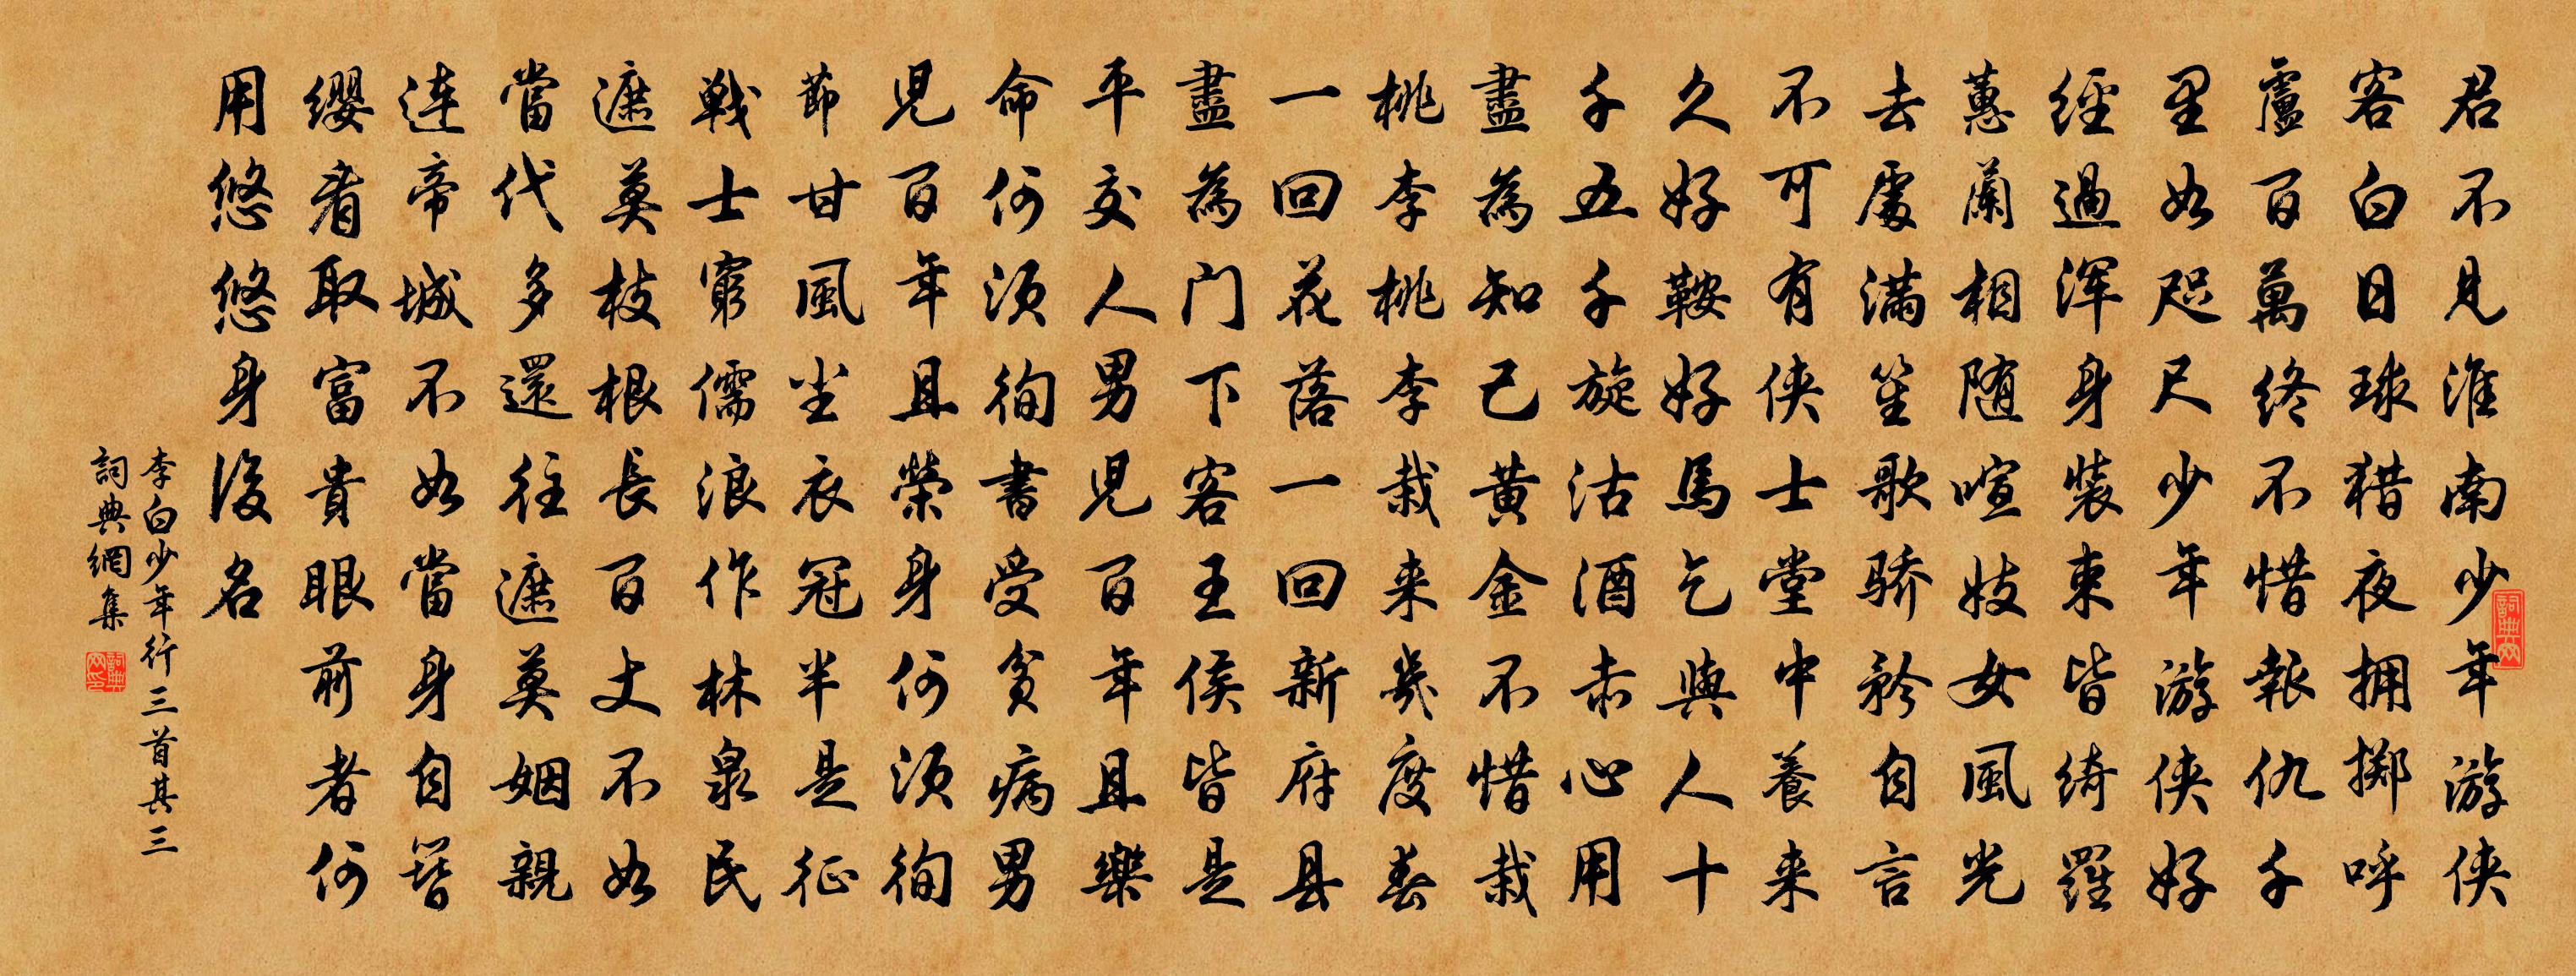 君不見淮南少年游侠
客白日球猎夜拥掷呼
盧百萬终不惜報仇千
里如咫尺少年游侠好
經過浑身裝束皆绮羅
蕙蘭相随喧妓女風光
去處满笙歌骄矜自言
不可有侠士堂中養来
久好鞍好馬乞與人十
千五千旋沽酒赤心用
盡為知己黄金不惜栽
桃李桃李栽来幾度春
一回花落一回新府县
盡為门下客王侯皆是
平交人男兒百年且樂
命何须徇書受贫病男
兒百年且榮身何须徇
節甘風尘衣冠半是征
戰士窮儒浪作林泉民
遮莫枝根長百丈不如
當代多還往遮莫姻親
連帝城不如當身自簪
缨看取富貴眼前者何
用悠悠身後名
李白少年行三首其三
詞典網集
詞典网
詞典网印